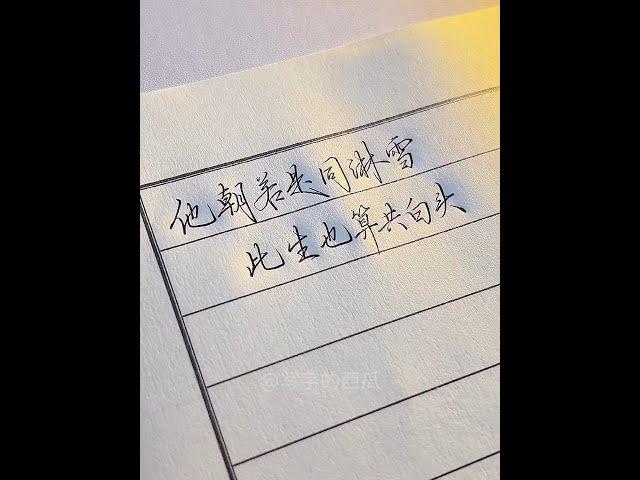 他朝若是同淋雪
此生也算共白头
@写字的西瓜